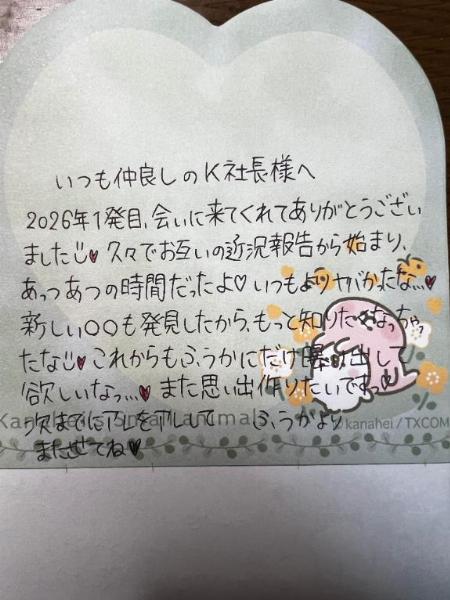 いつも仲良しのK社長様へ
2026年1発目、会いに来てくれてありがとうござい
ました♥久々でお互いの近況報告から始まり、
あっつあつの時間だったよ♡いつもよりヤバかったな…♥
新しい〇〇も発見したから、もっと知りたくなっちゃっ
たな♥これからもふうかにだけ曝け出し
欲しいなっ…♥また思い出作りたいですっ♥
次までにアレをアレして ふうかより
またせてね♥
©kanahei/TXCOM